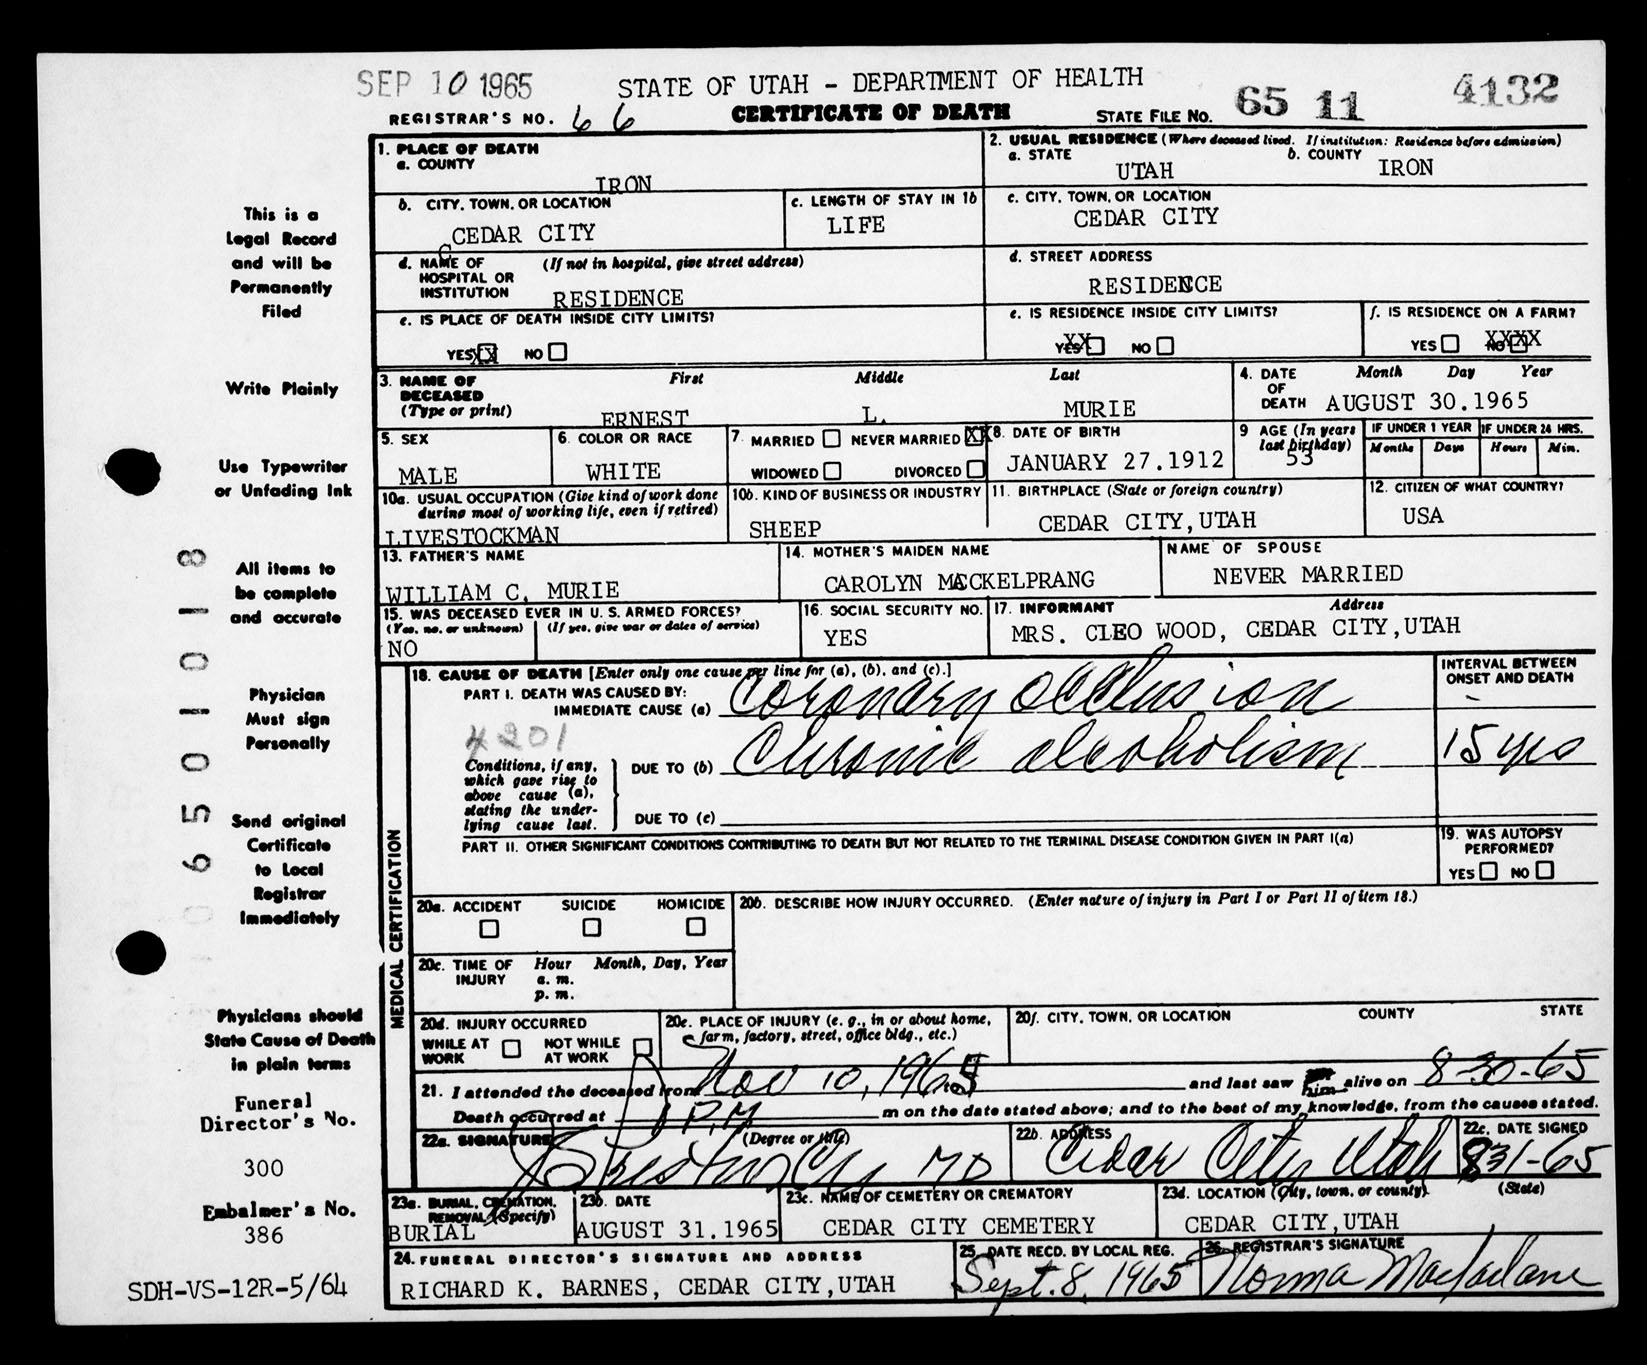 SEP 10 1965
STATE OF UTAH - DEPARTMENT OF HEALTH
REGISTRAR'S NO. 66
CERTIFICATE OF DEATH
STATE FILE NO. 65 11 4132
1. PLACE OF DEATH
a. COUNTY
IRON
2. USUAL RESIDENCE (Where deceased lived. If institution: Residence before admission)
a. STATE UTAH b. COUNTY IRON
b. CITY, TOWN, OR LOCATION
CEDAR CITY
c. LENGTH OF STAY IN 1b
LIFE
c. CITY, TOWN, OR LOCATION
CEDAR CITY
d. NAME OF HOSPITAL OR INSTITUTION (If not in hospital, give street address)
RESIDENCE
d. STREET ADDRESS
RESIDENCE
e. IS PLACE OF DEATH INSIDE CITY LIMITS?
YES XX NO
e. IS RESIDENCE INSIDE CITY LIMITS?
YES XX NO
f. IS RESIDENCE ON A FARM?
YES NO XXXX
3. NAME OF DECEASED (Type or print)
First Middle Last
ERNEST L. MURIE
4. DATE OF DEATH Month Day Year
AUGUST 30.1965
5. SEX
MALE
6. COLOR OR RACE
WHITE
7. MARRIED NEVER MARRIED XX
WIDOWED DIVORCED
8. DATE OF BIRTH
JANUARY 27.1912
9 AGE (In years last birthday)
53
IF UNDER 1 YEAR
Months Days
IF UNDER 24 HRS.
Hours Min.
10a. USUAL OCCUPATION (Give kind of work done during most of working life, even if retired)
LIVESTOCKMAN
10b. KIND OF BUSINESS OR INDUSTRY
SHEEP
11. BIRTHPLACE (State or foreign country)
CEDAR CITY,UTAH
12. CITIZEN OF WHAT COUNTRY?
USA
13. FATHER'S NAME
WILLIAM C. MURIE
14. MOTHER'S MAIDEN NAME
CAROLYN MACKELPRANG
NAME OF SPOUSE
NEVER MARRIED
15. WAS DECEASED EVER IN U.S. ARMED FORCES?
(Yes, no, or unknown) (If yes, give war or dates of service)
NO
16. SOCIAL SECURITY NO.
YES
17. INFORMANT Address
MRS. CLEO WOOD, CEDAR CITY,UTAH
MEDICAL CERTIFICATION
18. CAUSE OF DEATH [Enter only one cause per line for (a), (b), and (c).]
PART I. DEATH WAS CAUSED BY:
IMMEDIATE CAUSE (a) Coronary occlusion
INTERVAL BETWEEN ONSET AND DEATH
-
4201
Conditions, if any, which gave rise to above cause (a), stating the under-lying cause last.
DUE TO (b) Chronic alcoholism 15 yrs
DUE TO (c)
PART II. OTHER SIGNIFICANT CONDITIONS CONTRIBUTING TO DEATH BUT NOT RELATED TO THE TERMINAL DISEASE CONDITION GIVEN IN PART I(a)
19. WAS AUTOPSY PERFORMED?
YES NO
20a. ACCIDENT SUICIDE HOMICIDE
20b. DESCRIBE HOW INJURY OCCURRED. (Enter nature of injury in Part I or Part II of item 18.)
20c. TIME OF INJURY Hour Month, Day, Year
a. m.
p. m.
20d. INJURY OCCURRED
WHILE AT WORK NOT WHILE AT WORK
20e. PLACE OF INJURY (e. g., in or about home, farm, factory, street, office bldg., etc.)
20f. CITY, TOWN, OR LOCATION COUNTY STATE
21. I attended the deceased from Nov 10, 1965 and last saw him alive on 8-30-65
Death occurred at 1 P.M m on the date stated above; and to the best of my knowledge, from the causes stated.
22a. SIGNATURE (Degree or title)
MD
22b. ADDRESS
Cedar City Utah
22c. DATE SIGNED
8-31-65
23a. BURIAL, CREMATION, REMOVAL (Specify)
BURIAL
23b. DATE
AUGUST 31.1965
23c. NAME OF CEMETERY OR CREMATORY
CEDAR CITY CEMETERY
23d. LOCATION (City, town, or county) (State)
CEDAR CITY,UTAH
24. FUNERAL DIRECTOR'S SIGNATURE AND ADDRESS
RICHARD K. BARNES, CEDAR CITY,UTAH
25. DATE RECD. BY LOCAL REG.
Sept. 8, 1965
26. REGISTRAR'S SIGNATURE
Norma Macfarlane
This is a
Legal Record
and will be
Permanently
Filed
Write Plainly
Use Typewriter
or Unfading Ink
All items to
be complete
and accurate
Physician
Must sign
Personally
Send original
Certificate
to Local
Registrar
Immediately
Physicians should
State Cause of Death
in plain terms
Funeral
Director's No.
300
Embalmer's No.
386
SDH-VS-12R-5/64
0 6 5 0 1 0 1 8